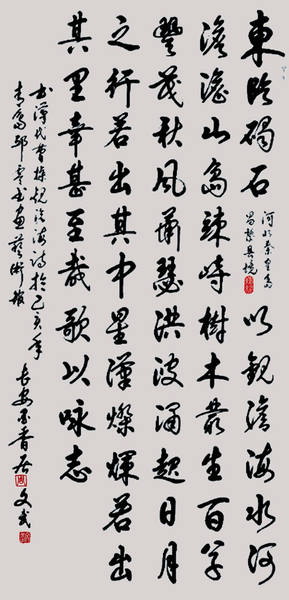 東臨碣石以觀滄海水何
澹澹山島竦峙樹木叢生百草
豐茂秋風蕭瑟洪波涌起日月
之行若出其中星漢燦爛若出
其里幸甚至哉歌以咏志
河北秦皇島
昌黎县境
书漢代曹操观滄海诗於己亥年
青島书画藝術報
長安墨香居
文武